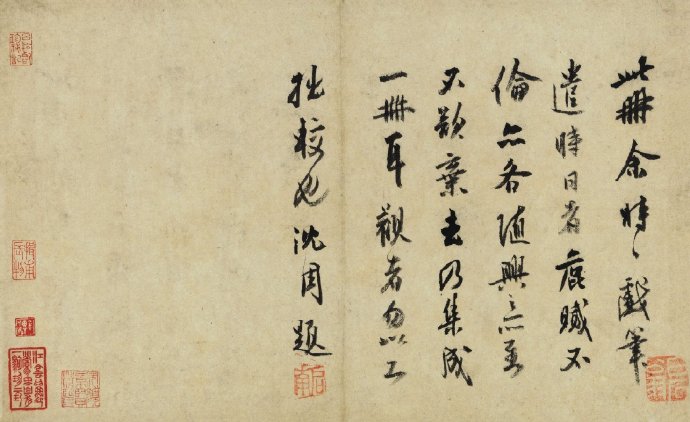 此冊余時〻戲筆
遣時日者不
倫亦各隨興至
不欲棄去乃集成
一冊耳觀者勿以工
拙較也沈周題